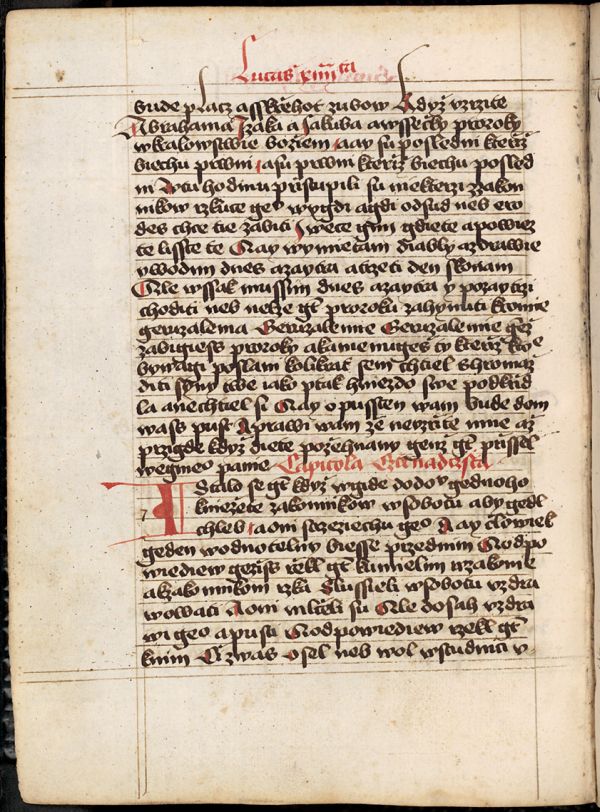 Lucas xiiii ta
bude placz a sskrzehot zubow Kdyz vzrzite
Abrahama Izaka a Jakuba a wssecky proroky
w kralowstwie boziem a ay su posledni kterziz
biechu prwni a su prwni kterziz biechu posled
ni W tu hodinu przistupili su niekterzi zakon
nikow rzkuce geo wygdi a gdi odsud neb ero
des chce tie zabiti I wece gim gdiete a powiez
te lissce te Nay wymietam diably a zdrawie
ywodim dnes a zaytra a trzeti den skonam
Ale wssak mussim dnes a zaytra y pozaytrzi
choditi neb nelze gt proroku zahynuti kromie
geruzalema Geruzaleme Geruzaleme genz
zabigiess proroky a kamenuges ty kterziz k tobe
bywagi poslani kolikrat sem chtiel shromaz
diti syny twe iako ptak hniezdo swe pod krzid
la a nechtiel si Nay opussten wam bude dom
wass pust A prawi wam ze neuzrite mne az
przigde kdyz diete pozehnany genz gt prissel
w gmeno panie Capitola Cztrnadczsta
I Stalo se gt kdyz wgide do domu gednoho
kniezete zakonnikow w sobotu aby gedl
chleb a oni strzeziechu geo A ay clowiek
geden wodnotelny biesse przed nim A odpo
wiediew geziss rzekl gt k umielim w zakonie
a k zakonnikom rzka Slussieli w sobotu vzdra
wowati A oni mlczeli su Ale dosah vzdra
wi geo a pusti A odpowiediew rzekl gt
k nim Ci z was osel neb wol w studnici v-